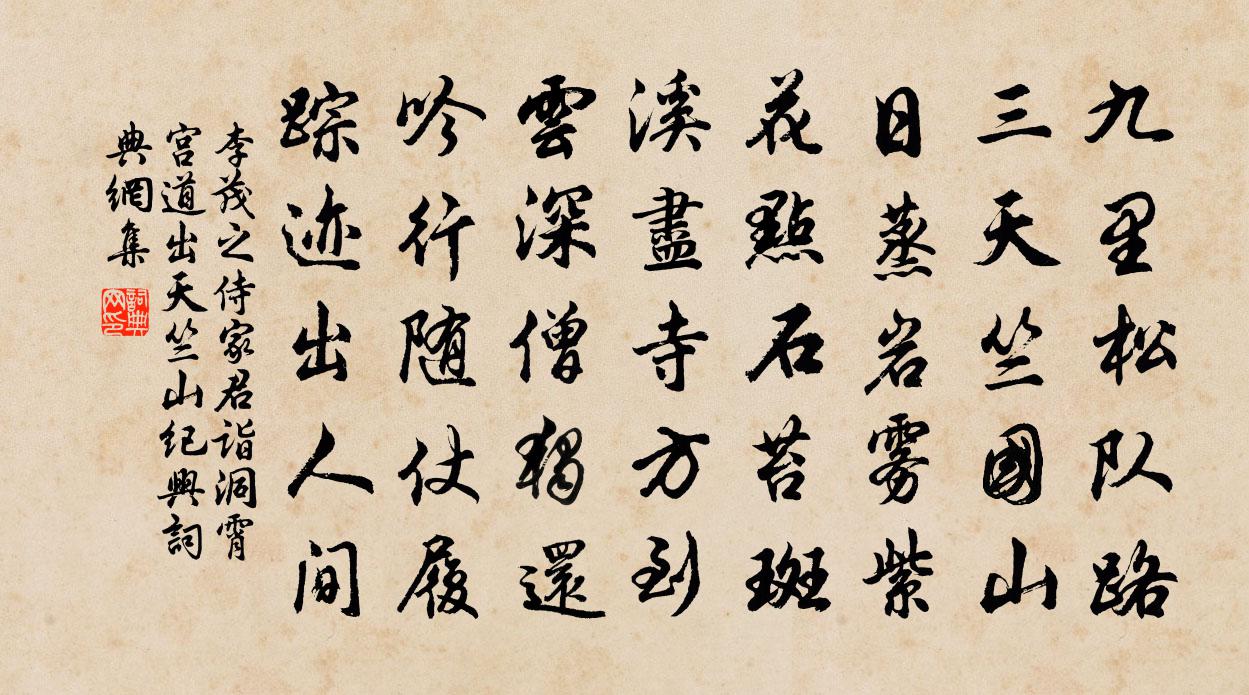 九里松队路
三天竺國山
日蒸岩雾紫
花點石苔斑
溪盡寺方到
雲深僧獨還
吟行随仗履
踪迹出人间
李茂之侍家君诣洞霄
宫道出天竺山纪興詞
典網集
詞典网印